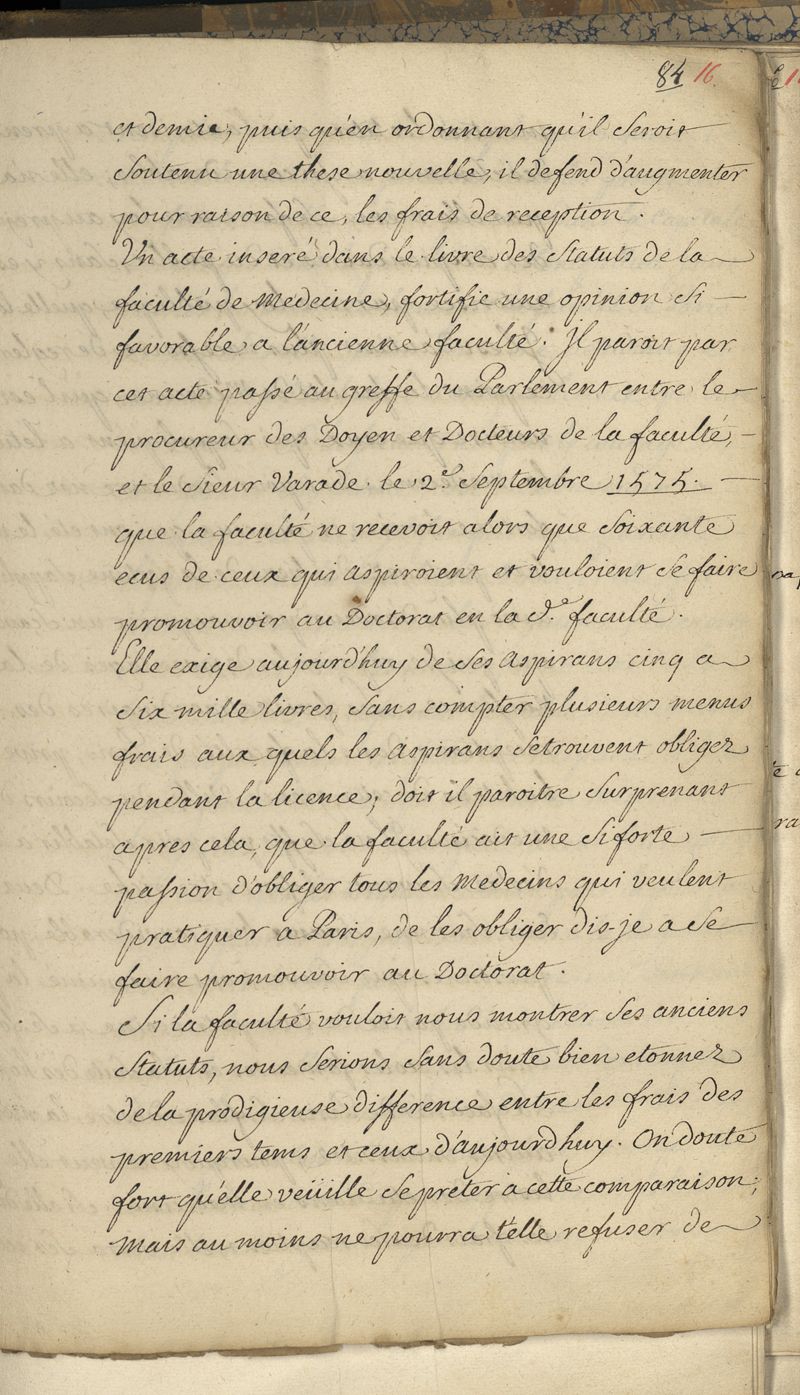 84 16.
et demie, puis qu'en ordonnant qu'il seroit
soutenu une these nouvelle, il defend d'augmenter
pour raison de ce, les frais de reception.
Un acte inseré dans le livre des Statuts de la
faculté de Medecine, fortifie une opinion si
favorable a l'ancienne faculté. Il paroit par
cet acte passé au greffe du Parlement entre le
procureur des Doyen et Docteurs de la faculté,
et le Sieur Varade le 2.e Septembre 1575.
que la faculté ne recevoit alors que soixante
ecus de ceux qui aspiroient et vouloient se faire
promouvoir au Doctorat en la d.e faculté.
Elle exige aujourd'huy de ses aspirans cinq a
six mille livres, sans compter plusieurs menus
frais aux quels les aspirans se trouvent obligez
pendant la licence; doit il paroitre surprenant
apres cela, que la faculté ait une si forte
passion d'obliger tous les Medecins qui veulent
pratiquer a Paris, de les obliger dis-je a se
faire promouvoir au Doctorat.
Si la faculté vouloit nous montrer ses anciens
Statuts, nous serions sans doute bien etonnez
de la prodigieuse difference entre les frais des
premiers tems et ceux d'aujourd'huy. On doute
fort qu'elle veüille se preter a cette comparaison;
Mais au moins ne pourra t'elle refuser de